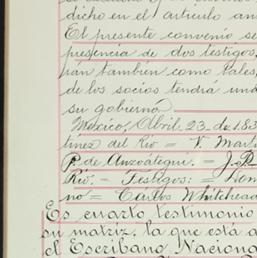 dicho en el artículo an
El presente convenio se
presencia de dos testigos,
rán también como tales,
de los socios tendrá una
su gobierno.
México, Abril 23 de 183
tínez del Río = V. Mart
P. de Anzoátegui. = J. P.
Río. = Testigos: = Hom
no = Cárlos Whitehead
Es cuarto testimonio
su matriz, la que está a
el Escribano Naciona